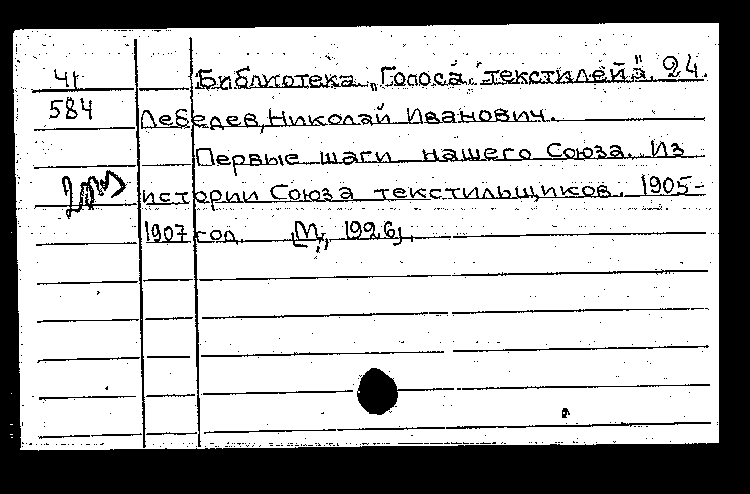 Чг
584
Библиотека „Голоса текстилей“. 24.
Лебедев, Николай Иванович.
Первые шаги нашего Союза. Из
истории Союза текстильщиков. 1905-
1907 год. [М., 1926].